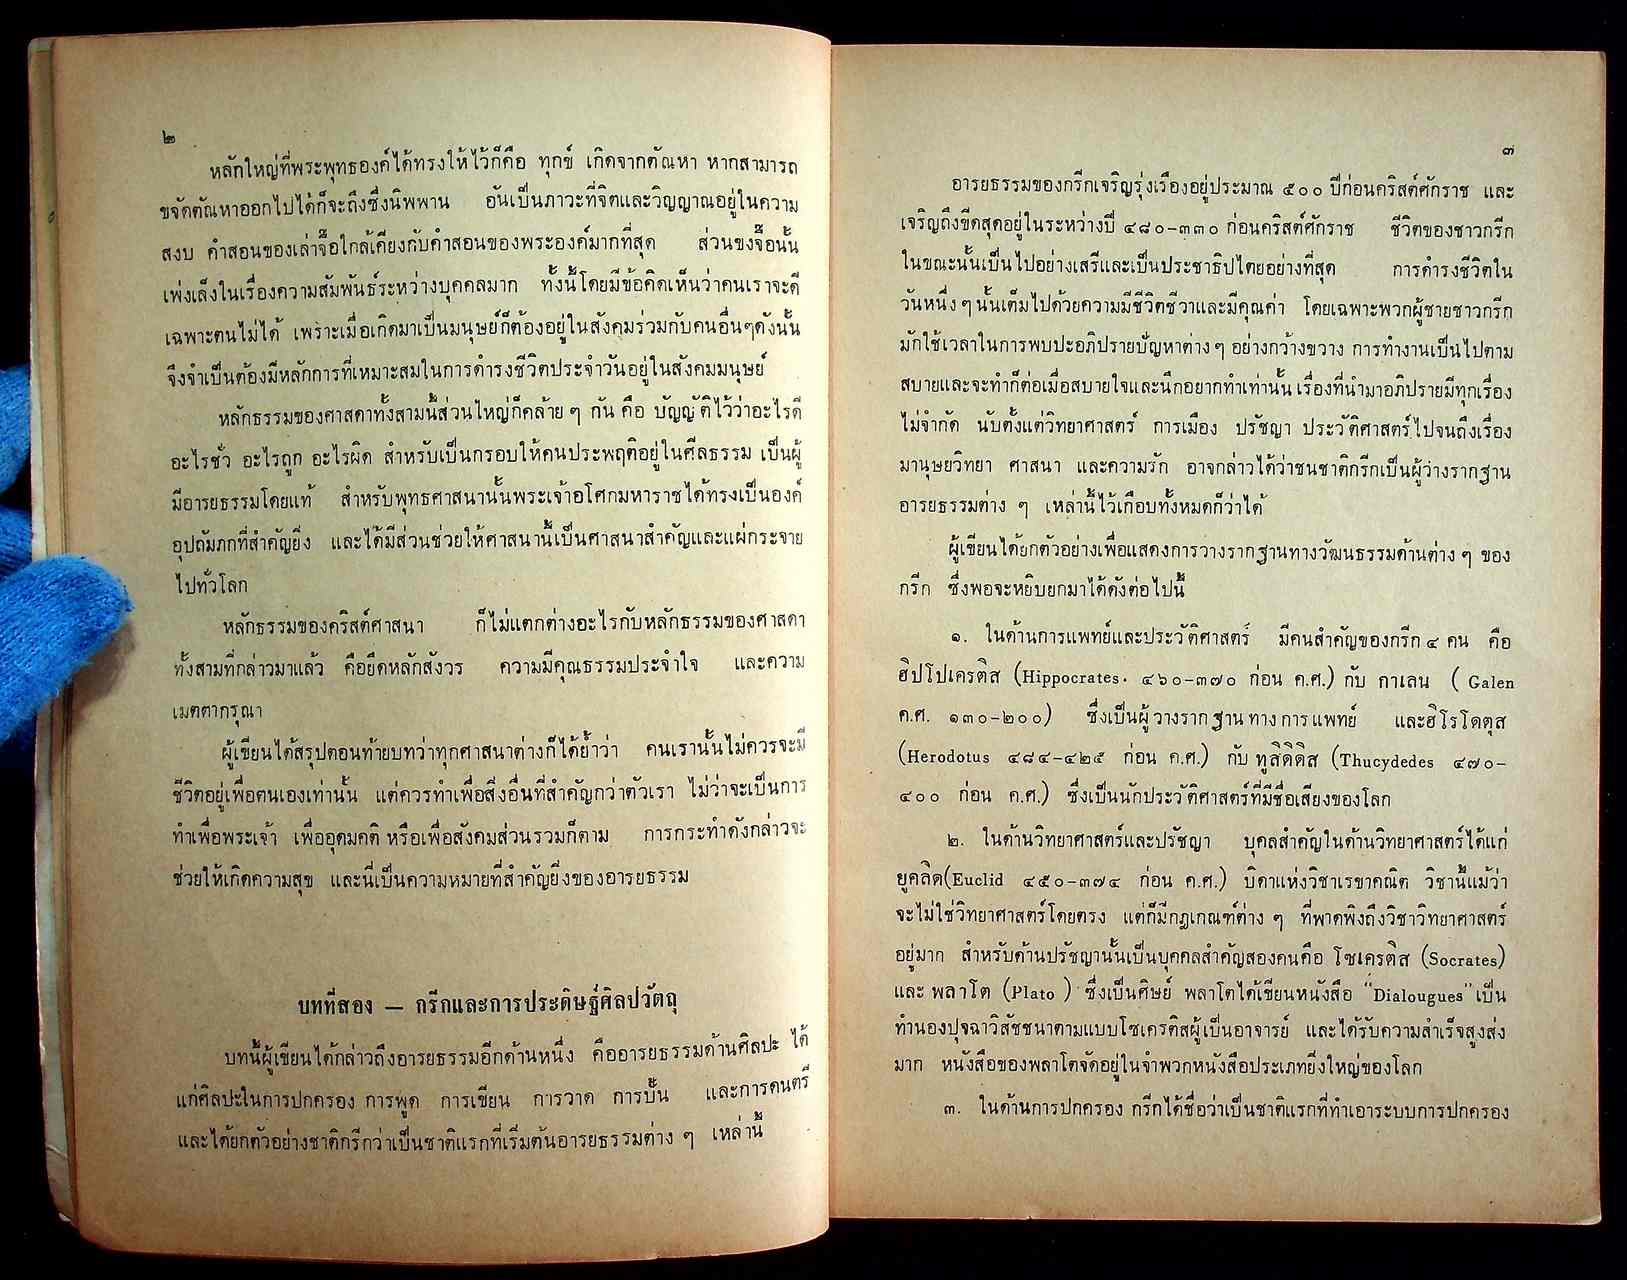 ๒
หลักใหญ่ที่พระพุทธองค์ได้ทรงให้ไว้ก็คือ ทุกข์ เกิดจากตัณหา หากสามารถ
ขจัดตัณหาออกไปได้ก็จะถึงซึ่งนิพพาน อันเป็นภาวะที่จิตและวิญญาณอยู่ในความ
สงบ คำสอนของเล่าจื๊อใกล้เคียงกับคำสอนของพระองค์มากที่สุด ส่วนขงจื๊อนั้น
เพ่งเล็งในเรื่องความสัมพันธ์ระหว่างบุคคลมาก ทั้งนี้โดยมีข้อคิดเห็นว่าคนเราจะดี
เฉพาะตนไม่ได้ เพราะเมื่อเกิดมาเป็นมนุษย์ก็ต้องอยู่ในสังคมร่วมกับคนอื่นๆดังนั้น
จึงจำเป็นต้องมีหลักการที่เหมาะสมในการดำรงชีวิตประจำวันอยู่ในสังคมมนุษย์
หลักธรรมของศาสดาทั้งสามนี้ส่วนใหญ่ก็คล้าย ๆ กัน คือ บัญญัติไว้ว่าอะไรดี
อะไรชั่ว อะไรถูก อะไรผิด สำหรับเป็นกรอบให้คนประพฤติอยู่ในศีลธรรม เป็นผู้
มีอารยธรรมโดยแท้ สำหรับพุทธศาสนานั้นพระเจ้าอโศกมหาราชได้ทรงเป็นองค์
อุปถัมภกที่สำคัญยิ่ง และได้มีส่วนช่วยให้ศาสนานี้เป็นศาสนาสำคัญและแผ่กระจาย
ไปทั่วโลก
หลักธรรมของคริสต์ศาสนา ก็ไม่แตกต่างอะไรกับหลักธรรมของศาสดา
ทั้งสามที่กล่าวมาแล้ว คือยึดหลักสังวร ความมีคุณธรรมประจำใจ และความ
เมตตากรุณา
ผู้เขียนได้สรุปตอนท้ายบทว่าทุกศาสนาต่างก็ได้ย้ำว่า คนเรานั้นไม่ควรจะมี
ชีวิตอยู่เพื่อตนเองเท่านั้น แต่ควรทำเพื่อสิ่งอื่นที่สำคัญกว่าตัวเรา ไม่ว่าจะเป็นการ
ทำเพื่อพระเจ้า เพื่ออุดมคติ หรือเพื่อสังคมส่วนรวมก็ตาม การกระทำดังกล่าวจะ
ช่วยให้เกิดความสุข และนี่เป็นความหมายที่สำคัญยิ่งของอารยธรรม
บทที่สอง — กรีกและการประดิษฐ์ศิลปวัตถุ
บทนี้ผู้เขียนได้กล่าวถึงอารยธรรมอีกด้านหนึ่ง คืออารยธรรมด้านศิลปะ ได้
แก่ศิลปะในการปกครอง การพูด การเขียน การวาด การปั้น และการดนตรี
และได้ยกตัวอย่างชาติกรีกว่าเป็นชาติแรกที่เริ่มต้นอารยธรรมต่าง ๆ เหล่านี้
๗
อารยธรรมของกรีกเจริญรุ่งเรืองอยู่ประมาณ ๕๐๐ ปีก่อนคริสต์ศักราช และ
เจริญถึงขีดสุดอยู่ในระหว่างปี ๔๘๐-๓๓๐ ก่อนคริสต์ศักราช ชีวิตของชาวกรีก
ในขณะนั้นเป็นไปอย่างเสรีและเป็นประชาธิปไตยอย่างที่สุด การดำรงชีวิตใน
วันหนึ่ง ๆ นั้นเต็มไปด้วยความมีชีวิตชีวาและมีคุณค่า โดยเฉพาะพวกผู้ชายชาวกรีก
มักใช้เวลาในการพบปะอภิปรายปัญหาต่าง ๆ อย่างกว้างขวาง การทำงานเป็นไปตาม
สบายและจะทำก็ต่อเมื่อสบายใจและนึกอยากทำเท่านั้น เรื่องที่นำมาอภิปรายมีทุกเรื่อง
ไม่จำกัด นับตั้งแต่วิทยาศาสตร์ การเมือง ปรัชญา ประวัติศาสตร์ไปจนถึงเรื่อง
มานุษยวิทยา ศาสนา และความรัก อาจกล่าวได้ว่าชนชาติกรีกเป็นผู้วางรากฐาน
อารยธรรมต่าง ๆ เหล่านี้ไว้เกือบทั้งหมดก็ว่าได้
ผู้เขียนได้ยกตัวอย่างเพื่อแสดงการวางรากฐานทางวัฒนธรรมด้านต่าง ๆ ของ
กรีก ซึ่งพอจะหยิบยกมาได้ดังต่อไปนี้
๑. ในด้านการแพทย์และประวัติศาสตร์ มีคนสำคัญของกรีก ๔ คน คือ
ฮิปโปเครติส (Hippocrates. ๔๖๐-๓๗๐ ก่อน ค.ศ.) กับ กาเลน ( Galen
ค.ศ. ๑๓๐-๒๐๐) ซึ่งเป็นผู้วางรากฐานทางการแพทย์ และฮิโรโดตุส
(Herodotus ๔๘๔-๔๒๕ ก่อน ค.ศ.) กับ ทูสิดิดิส (Thucydedes ๔๗๐-
๔๐๐ ก่อน ค.ศ.) ซึ่งเป็นนักประวัติศาสตร์ที่มีชื่อเสียงของโลก
๒. ในด้านวิทยาศาสตร์และปรัชญา บุคลสำคัญในด้านวิทยาศาสตร์ได้แก่
ยูคลิด(Euclid ๔๕๐-๓๗๔ ก่อน ค.ศ.) บิดาแห่งวิชาเรขาคณิต วิชานี้แม้ว่า
จะไม่ใช่วิทยาศาสตร์โดยตรง แต่ก็มีกฎเกณฑ์ต่าง ๆ ที่พาดพิงถึงวิชาวิทยาศาสตร์
อยู่มาก สำหรับด้านปรัชญานั้นเป็นบุคคลสำคัญสองคนคือ โซเครติส (Socrates)
และ พลาโต (Plato ) ซึ่งเป็นศิษย์ พลาโตได้เขียนหนังสือ "Dialougues" เป็น
ทำนองปุจฉาวิสัชชนาตามแบบโซเครติสผู้เป็นอาจารย์ และได้รับความสำเร็จสูงส่ง
มาก หนังสือของพลาโตจัดอยู่ในจำพวกหนังสือประเภทยิ่งใหญ่ของโลก
๓. ในด้านการปกครอง กรีกได้ชื่อว่าเป็นชาติแรกที่ทำเอาระบบการปกครอง